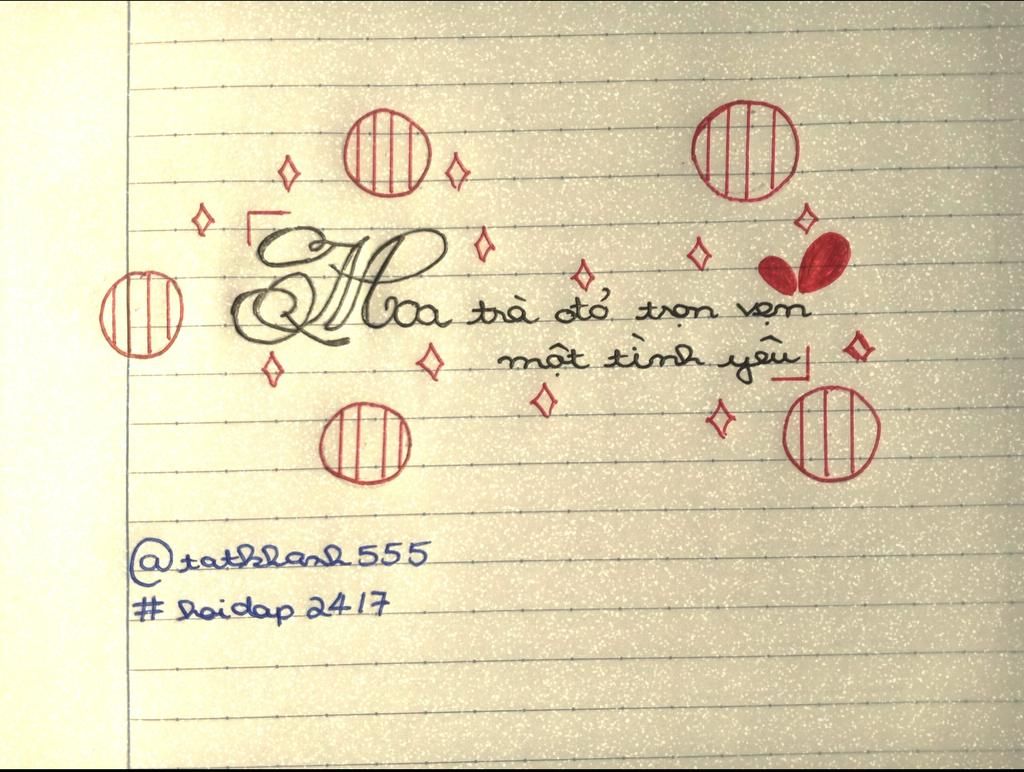 Hoa trà đỏ trọn vẹn
một tình yêu
@tatkhanh555
# hoidap2417